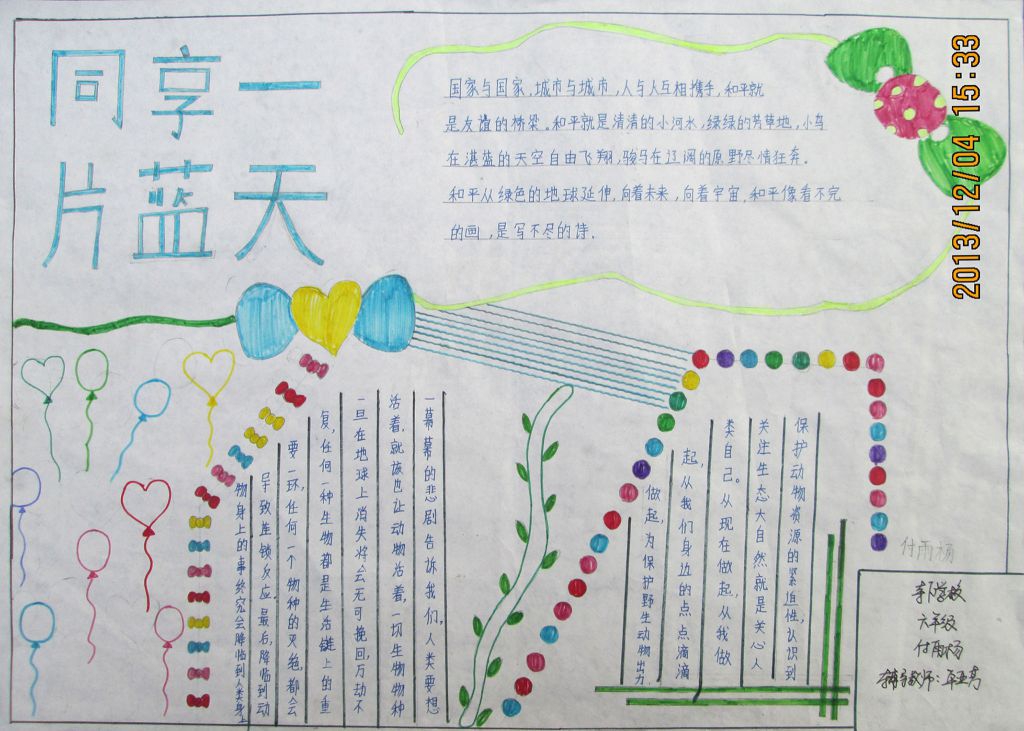 同享一
片蓝天
国家与国家,城市与城市,人与人互相携手,和平就
是友谊的桥梁。和平就是清清的小河水,绿绿的芳草地,小鸟
在湛蓝的天空自由飞翔,骏马在辽阔的原野尽情狂奔.
和平从绿色的地球延伸,向着未来,向着宇宙,和平像看不完
的画,是写不尽的诗.
2013/12/04 15:33
一幕幕的悲剧告诉我们,人类要想
活着,就该也让动物活着,一切生物物种
一旦在地球上消失将会无可挽回,万动不
复,任何一种生物都是生态链上的重
要一环,任何一个物种的灭绝,都会
导致连锁反应.最后,降临到动
物身上的事终究会降临到人类身上
保护动物资源的紧迫性,认识到
关注生态大自然,就是关心人
类自己。从现在做起,从我做
起,从我们身边的点点滴滴
做起,为保护野生动物出力
付雨杨
学校
六年级
付雨杨
辅导教师: